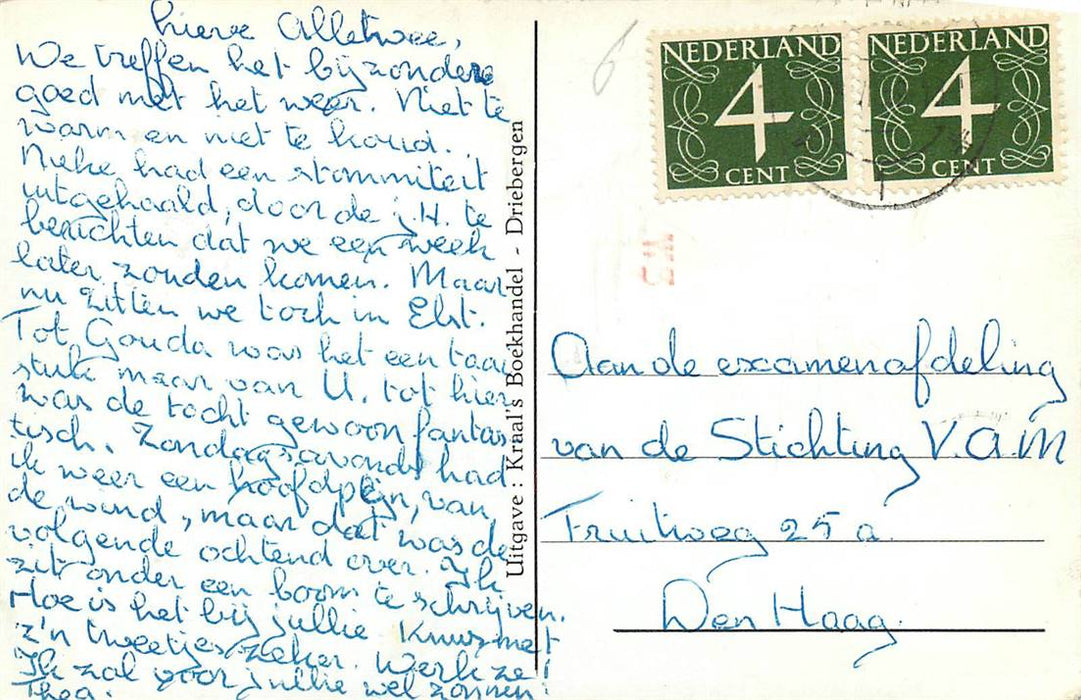 Lieve Alletwee,
We treffen het bijzondere
goed met het weer. Niet te
warm en niet te koud.
Nieke had een stommiteit
uitgehaald, door de j.H. te
berichten dat we een week
later zouden komen. Maar
nu zitten we toch in Elst.
Tot Gouda was het een taai
stuk maar van U. tot hier
was de tocht gewoon fantas
tisch. Zondagsavonds had
ik weer een hoofdpijn, van
de wind, maar dat was de
volgende ochtend over. Ik
zit onder een boom te schrijven.
Hoe is het bij jullie Knus met
z'n tweetjes zeker. Werk ze!
Ik zal voor jullie wel zonnen!
Thea.
Uitgave: Kraal's Boekhandel - Driebergen
6
NEDERLAND
4
CENT
NEDERLAND
4
CENT
Aan de examenafdeling
van de Stichting V.A.M
Fruitweg 25 a.
Den Haag.